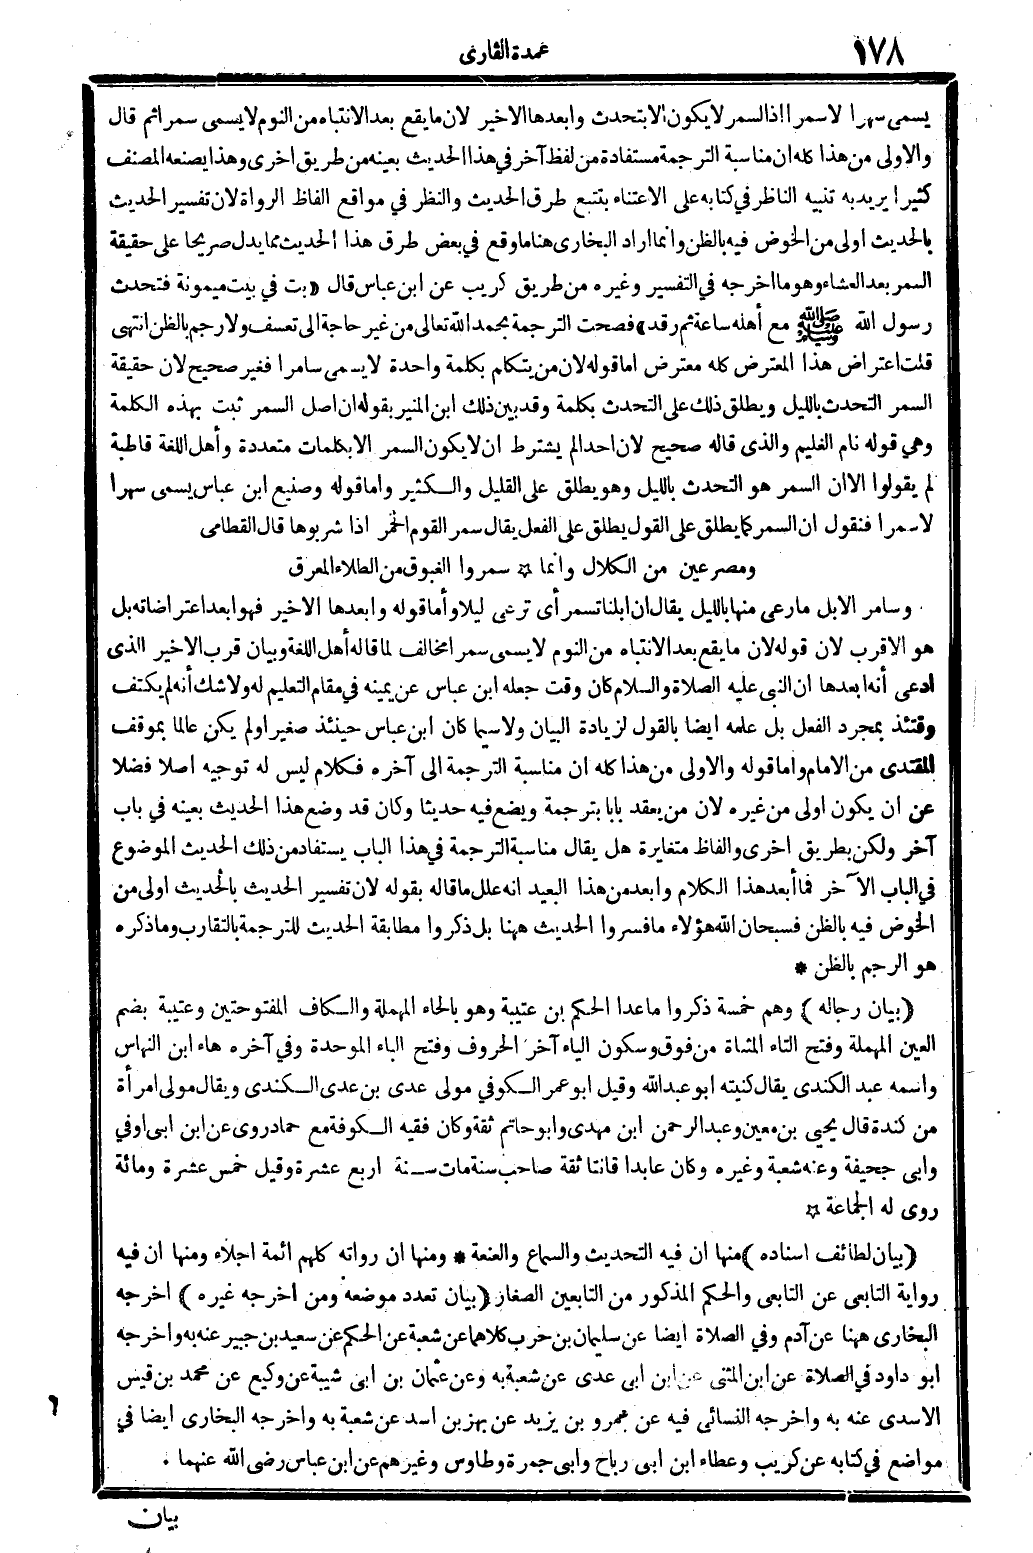 ١٧٨
عمدة القارى
يسمى سهرا لا سمرا اذ السمر لا يكون الا بتحدث وابعدها الاخير لان ما يقع بعد الانتباه من النوم لا يسمى سمرا ثم قال
والاولى من هذا كله ان مناسبة الترجمة مستفادة من لفظ آخر في هذا الحديث بعينه من طريق اخرى وهذا يصنعه المصنف
كثيرا يريد به تنبيه الناظر في كتابه على الاعتناء بتتبع طرق الحديث والنظر في مواقع الفاظ الرواة لان تفسير الحديث
بالحديث اولى من الخوض فيه بالظن وانما اراد البخارى هنا ما وقع في بعض طرق هذا الحديث مما يدل صريحا على حقيقة
السمر بعد العشاء وهو ما اخرجه في التفسير وغيره من طريق كريب عن ابن عباس قال «بت في بيت ميمونة فتحدث
رسول الله ﷺ مع أهله ساعة ثم رقد» فصحت الترجمة بحمد الله تعالى من غير حاجة الى تعسف ولا رجم بالظن انتهى
قلت اعتراض هذا المعترض كله معترض اما قوله لان من يتكلم بكلمة واحدة لا يسمى سامرا فغير صحيح لان حقيقة
السمر التحدث بالليل ويطلق ذلك على التحدث بكلمة وقد بين ذلك ابن المنير بقوله ان اصل السمر ثبت بهذه الكلمة
وهي قوله نام الغليم والذى قاله صحيح لان احدا لم يشترط ان لا يكون السمر الا بكلمات متعددة وأهل اللغة قاطبة
لم يقولوا الا ان السمر هو التحدث بالليل وهو يطلق على القليل والكثير واما قوله وصنيع ابن عباس يسمى سهرا
لا سمرا فنقول ان السمر كما يطلق على القول يطلق على الفعل يقال سمر القوم الخمر اذا شربوها قال القطامى
ومصرعين من الكلال وانما ☆ سمروا الغبوق من الطلاء المعرق
وسامر الابل ما رعى منها بالليل يقال ان ابلنا تسمر أى ترعى ليلا وأما قوله وابعدها الاخير فهو ابعد اعتراضاته بل
هو الاقرب لان قوله لان ما يقع بعد الانتباه من النوم لا يسمى سمرا مخالف لما قاله أهل اللغة وبيان قرب الاخير الذى
ادعى أنه ابعدها ان النبى عليه الصلاة والسلام كان وقت جعله ابن عباس عن يمينه في مقام التعليم له ولا شك أنه لم يكتف
وقتئذ بمجرد الفعل بل علمه ايضا بالقول لزيادة البيان ولا سيما كان ابن عباس حينئذ صغيرا ولم يكن عالما بموقف
المقتدى من الامام واما قوله والاولى من هذا كله ان مناسبة الترجمة الى آخره فكلام ليس له توجيه أصلا فضلا
عن ان يكون اولى من غيره لان من يعقد بابا بترجمة ويضع فيه حديثا وكان قد وضع هذا الحديث بعينه في باب
آخر ولكن بطريق اخرى والفاظ متغايرة هل يقال مناسبة الترجمة في هذا الباب يستفاد من ذلك الحديث الموضوع
في الباب الآخر فما أبعد هذا الكلام وابعد من هذا البعيد انه علل ما قاله بقوله لان تفسير الحديث بالحديث اولى من
الخوض فيه بالظن فسبحان الله هؤلاء ما فسروا الحديث ههنا بل ذكروا مطابقة الحديث للترجمة بالتقارب وما ذكره
هو الرجم بالظن *
(بيان رجاله) وهم خمسة ذكروا ما عدا الحكم بن عتيبة وهو بالحاء المهملة والكاف المفتوحتين وعتيبة بضم
العين المهملة وفتح التاء المثناة من فوق وسكون الياء آخر الحروف وفتح الباء الموحدة وفي آخره هاء ابن النهاس
واسمه عبد الكندى يقال كنيته ابو عبد الله وقيل ابو عمر الكوفي مولى عدى بن عدى الكندى ويقال مولى امرأة
من كندة قال يحيى بن معين وعبد الرحمن ابن مهدى وابو حاتم ثقة وكان فقيه الكوفة مع حماد روى عن ابن ابى اوفي
وابى جحيفة وعنه شعبة وغيره وكان عابدا قانتا ثقة صاحب سنة مات سنة اربع عشرة وقيل خمس عشرة ومائة
روى له الجماعة ☆
(بيان لطائف اسناده) منها ان فيه التحديث والسماع والعنعنة * ومنها ان رواته كلهم ائمة اجلاء ومنها ان فيه
رواية التابعى عن التابعى والحكم المذكور من التابعين الصغار (بيان تعدد موضعه ومن اخرجه غيره) اخرجه
البخارى ههنا عن آدم وفي الصلاة ايضا عن سليمان بن حرب كلاهما عن شعبة عن الحكم عن سعيد بن جبير عنه به واخرجه
ابو داود في الصلاة عن ابن المثنى عن ابن ابى عدى عن شعبة به وعن عثمان بن ابى شيبة عن وكيع عن محمد بن قيس
الاسدى عنه به واخرجه النسائى فيه عن عمرو بن يزيد عن بهز بن اسد عن شعبة به واخرجه البخارى ايضا في
مواضع في كتابه عن كريب وعطاء ابن ابى رباح وابى جمرة وطاوس وغيرهم عن ابن عباس رضى الله عنهما .
بيان